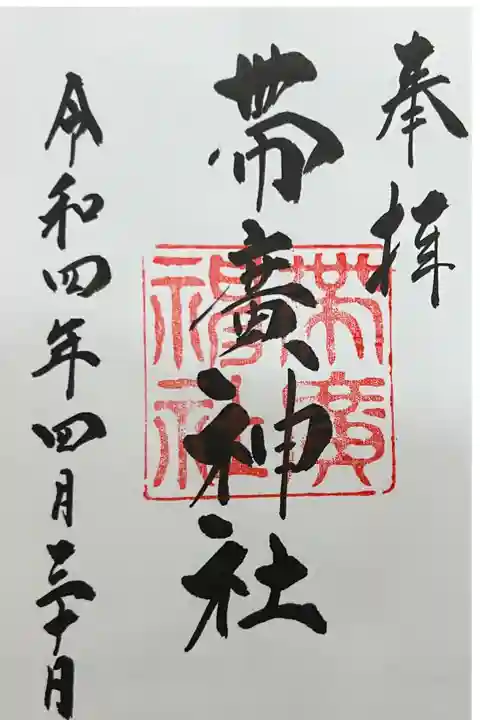 奉拝
帯廣神社
令和四年四月三十日
帯廣
神社